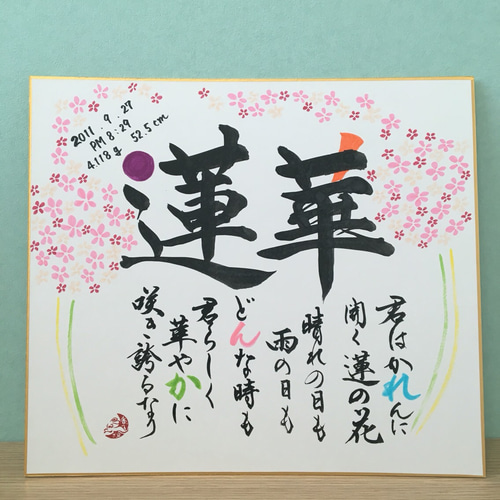 2011.9.27
PM 8:29
4.118g 52.5cm
蓮華
君はかれんに
開く蓮の花
晴れの日も
雨の日も
どんな時も
君らしく
華やかに
咲き誇るなり